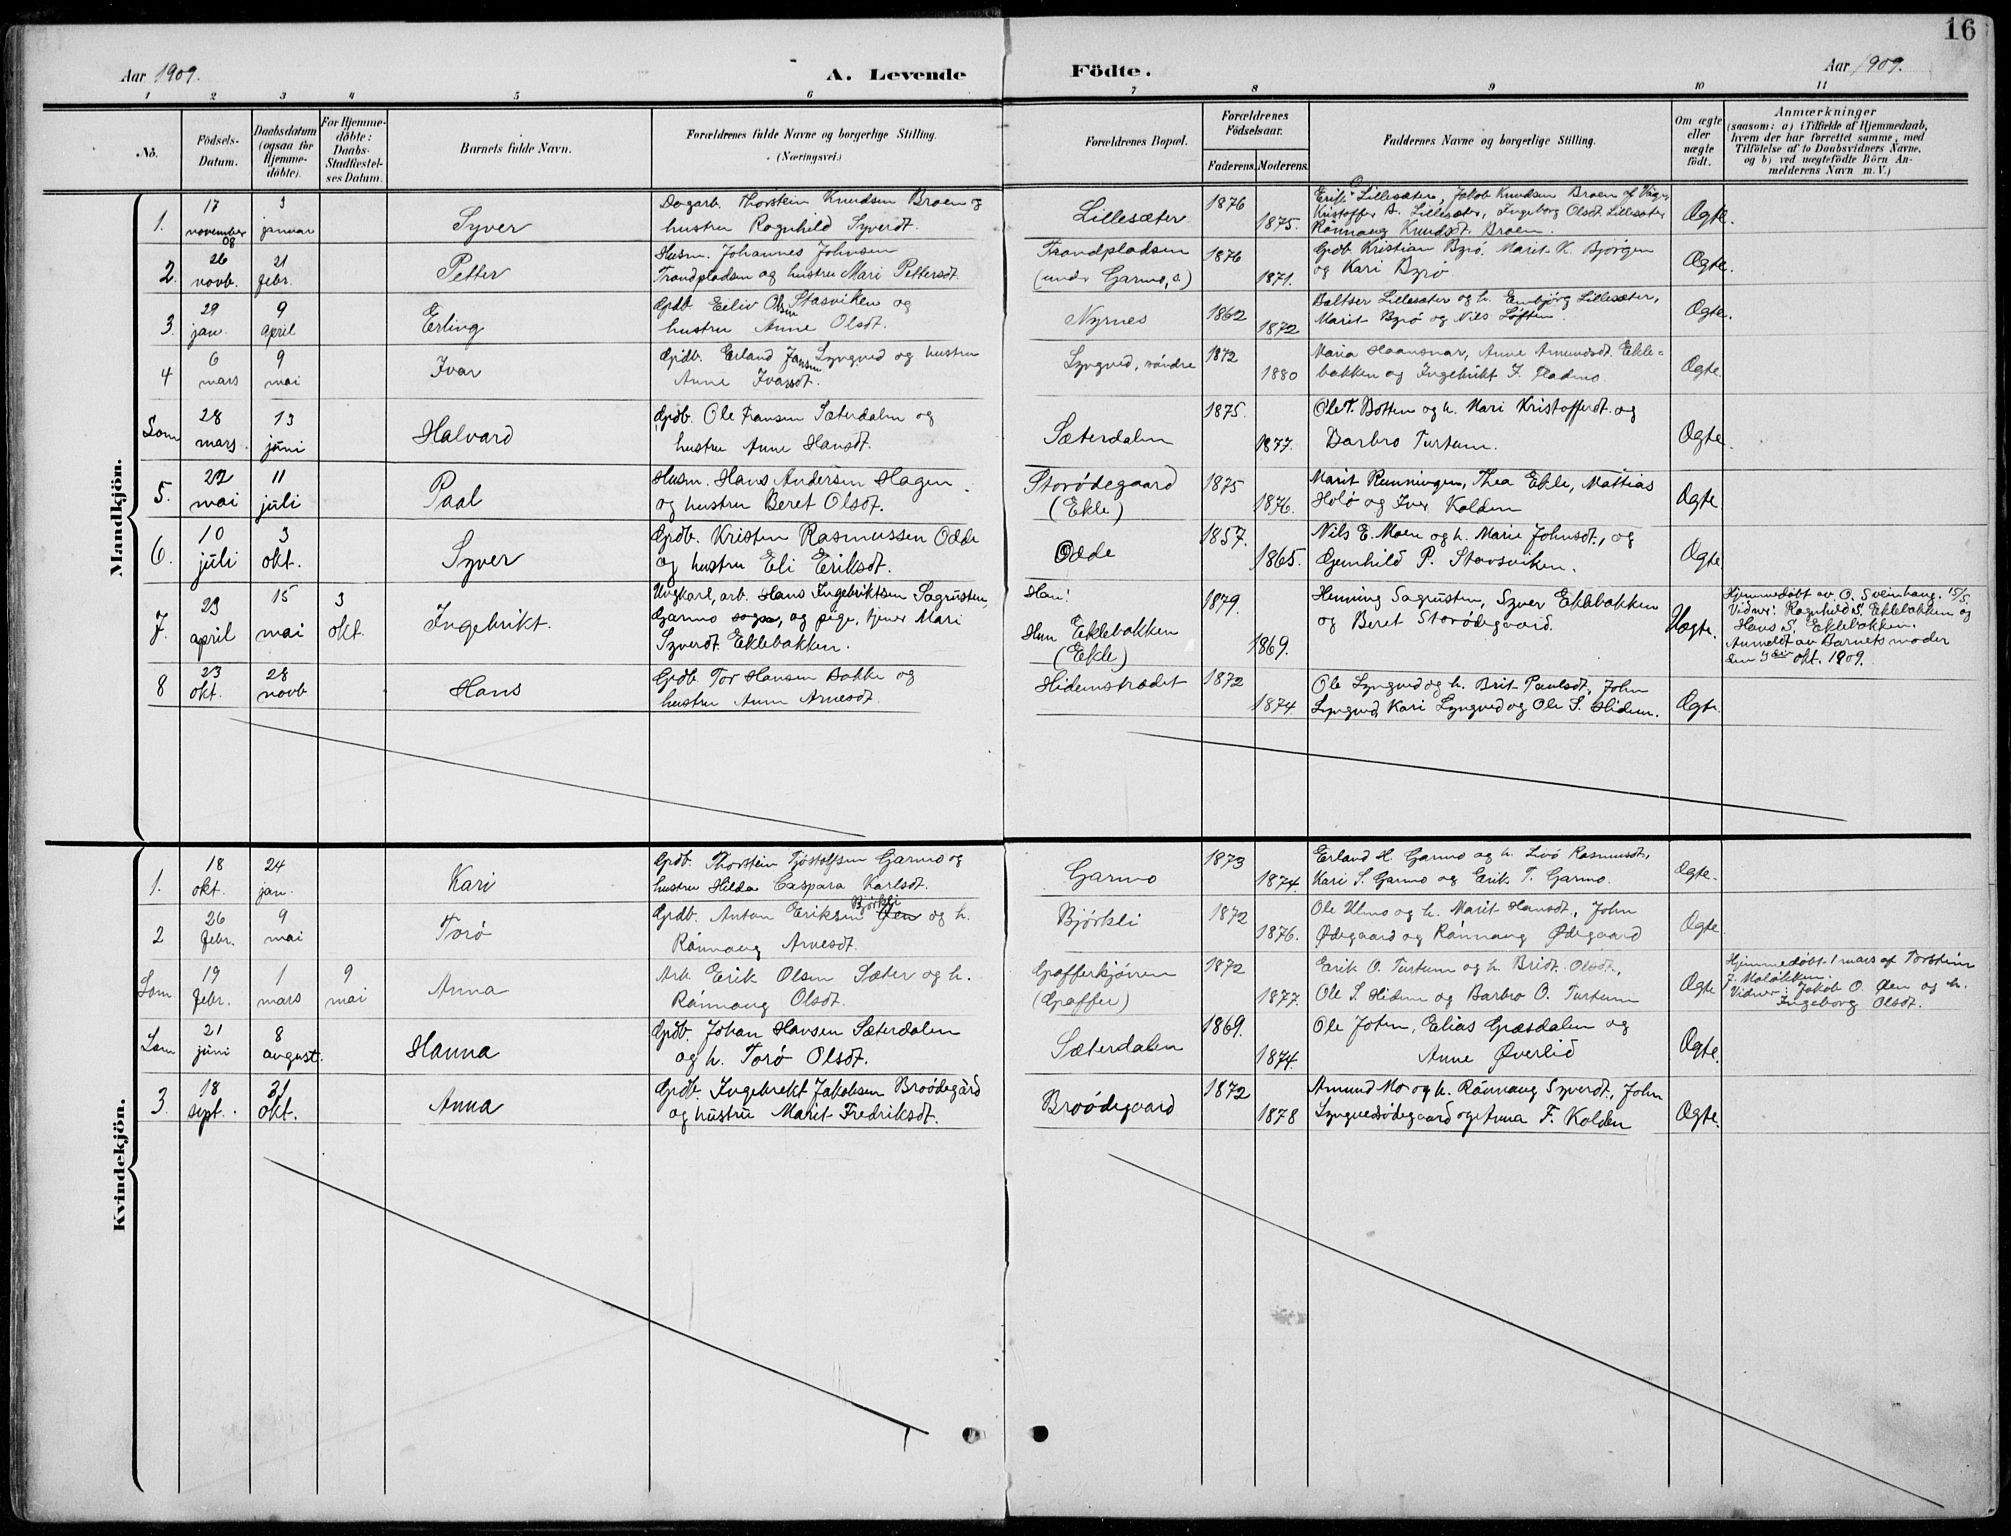 16
Aar 1909.
A. Levende Födte.
Aar 1909.
1 2 3 4 5 6 7 8 9 10 11
No.
Födsels-Datum.
Daabsdatum (ogsaa for Hjemme-döbte).
For Hjemme-döbte: Daabs-Stadfæstel-ses Datum.
Barnets fulde Navn.
Forældrenes fulde Navne og borgerlige Stilling.
(Næringsvei.)
Forældrenes Bopæl.
Forældrenes Födselsaar.
Faderens. Moderens.
Faddernes Navne og borgerlige Stilling.
Om ægte eller uægte födt.
Anmærkninger
(saasom: a) i Tilfælde af Hjemmedaab,
hvem der har forrettet samme, med
Tilföielse af to Daabsvidners Navne,
og b) ved uægtefödte Börn An-
melderens Navn m. V.)
Mandkjön.
1. 17 november 08 3 januar Syver
Dagarb. Thorstein Knudsen Braen og
hustru Ragnhild Syversdt.
Lillesæter 1876 1875.
Erik O. Lillesæter, Jakob Knudsen Braen af Vaage
Kristoffer A. Lillesæter, Ingeborg Olsdt. Lillesæter
Rønnaug Knudsdt. Braen.
Ægte.
2. 26 novb. 21 febr. Petter
Husm. Johannes Johnsen
Trandpladsen og hustru Mari Pettersdt.
Trandpladsen
(under Garmo, s.)
1876 1871.
Grdb. Kristian Byrø. Marit K. Bjørgen
og Kari Byrø
Ægte.
3. 29 jan. 9 april Erling
Grdb. Eiliv Olsen Stasviken og
hustru Anne Olsdt.
Nyrnes 1862 1872
Baltser Lillesæter og h. Embjørg Lillesæter,
Marit Byrø og Nils Løften.
Ægte.
4 6 mars 9 mai Ivar
Grdb. Erland Jansen Lyngved og hustru
Anne Ivarsdt.
Lyngved, søndre 1872 1880
Maria Haansnar, Anne Amundsdt. Ekle-
bakken og Ingebrikt J. Fladmo.
Ægte.
Lom 28 mars. 13 juni Halvard
Grdb. Ole Fransen Sæterdalen og
hustru Anne Hansdt.
Sæterdalen 1875. 1877.
Ole T. Botten og h. Mari Kristoffersdt. og
Barbro Turtum.
Ægte.
5. 22 mai 11 juli Paal
Husm. Hans Andersen Hagen
og hustru Beret Olsdt.
Storødegaard
(Ekle)
1875 1876.
Marit Rønningen, Thea Ekle, Mattias
Holø og Iver Kolden
Ægte
6. 10 juli 3 okt. Syver
Grdb. Kristen Rasmussen Odde
og hustru Eli Eriksdt.
Odde 1857. 1865.
Nils E. Moen og h. Marie Johnsdt., og
Gunhild P. Stavsviken.
Ægte
7. 23 april 15 mai 3 okt. Ingebrikt.
Ungkarl, arb. Hans Ingebriktsen Sagrusten,
Garmo sogn, og pige, tjener Mari
Syversdt. Eklebakken.
Han:
Hun Eklebakken
(Ekle)
1879. 1869.
Henning Sagrusten, Syver Eklebakken
og Beret Storødegaard.
Uægte.
Hjemmedøbt av O. Sveinhaug. 15/5.
Vidner: Ragnhild S. Eklebakken og
Hans S. Eklebakken.
Anmeldt av Barnets moder
den 3die okt. 1909.
8 23 okt. 28 novb Hans
Grdb. Tor Hansen Bakke og
hustru Anne Arnesdt.
Hidemstrædet 1872 1874.
Ole Lyngved og h. Brit Paulsdt, John
Lyngved, Kari Lyngved og Ole S. Hidem.
Ægte.
Kvindekjön.
1. 18 okt. 24 jan. Kari
Grdb. Thorstein Tjøstolfsen Garmo og
hustru Hilda Caspara Karlsdt.
Garmo 1873 1874.
Erland H. Garmo og h. Livø Rasmusdt,
Kari S. Garmo og Erik T. Garmo.
Ægte.
2 26 febr. 9 mai Torø
Grdb. Anton Eriksen Øen Bjørkli og h.
Rønnaug Arnesdt.
Bjørkli 1872 1876.
Ole Ulmo og h. Marit Hansdt., John
Ødegaard og Rønnaug Ødegaard
Ægte.
Lom 19 febr. 1 mars 9 mai Anna
Arb. Erik Olsen Sæter og h.
Rønnaug Olsdt.
Graffertkjørren
(Graffer)
1872 1877.
Erik O. Turtum og h. Bridt. Olsdt.,
Ole S. Hidem og Barbro O. Turtum
Ægte
Hjemmedøbt 1 mars af Torstein
J. Moløkken.
Vidner: Jakob O. Øen og h.
Ingeborg Olsdt.
Lom 21 juni 8 august. Hanna
Grdb. Johan Hansen Sæterdalen
og h. Torø Olsdt.
Sæterdalen 1869. 1874.
Ole John, Elias Græsdalen og
Anne Øverlid
Ægte.
3. 18 sept. 31 okt. Anna
Grdb. Ingebrekt Jakobsen Broødegård
og hustru Marit Fredriksdt.
Broødegaard 1872 1878
Amund Mo og h. Rønnaug Syversdt., John
Lyngvedsødegaard og Anna F. Kolden
Ægte.